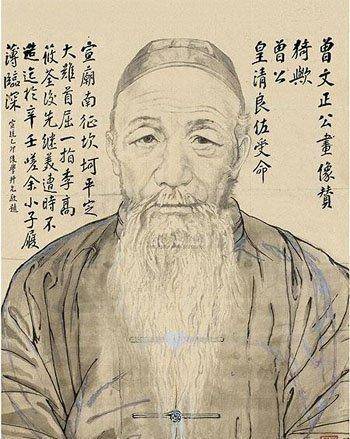 曾文正公畫像贊
猗歟
曾公
皇清良佐受命
宣廟南征坎坷平定
大難首屈一指李高
筱荃後先繼美遭時不
造迄於辛壬嗟余小子履
薄臨深
後學題